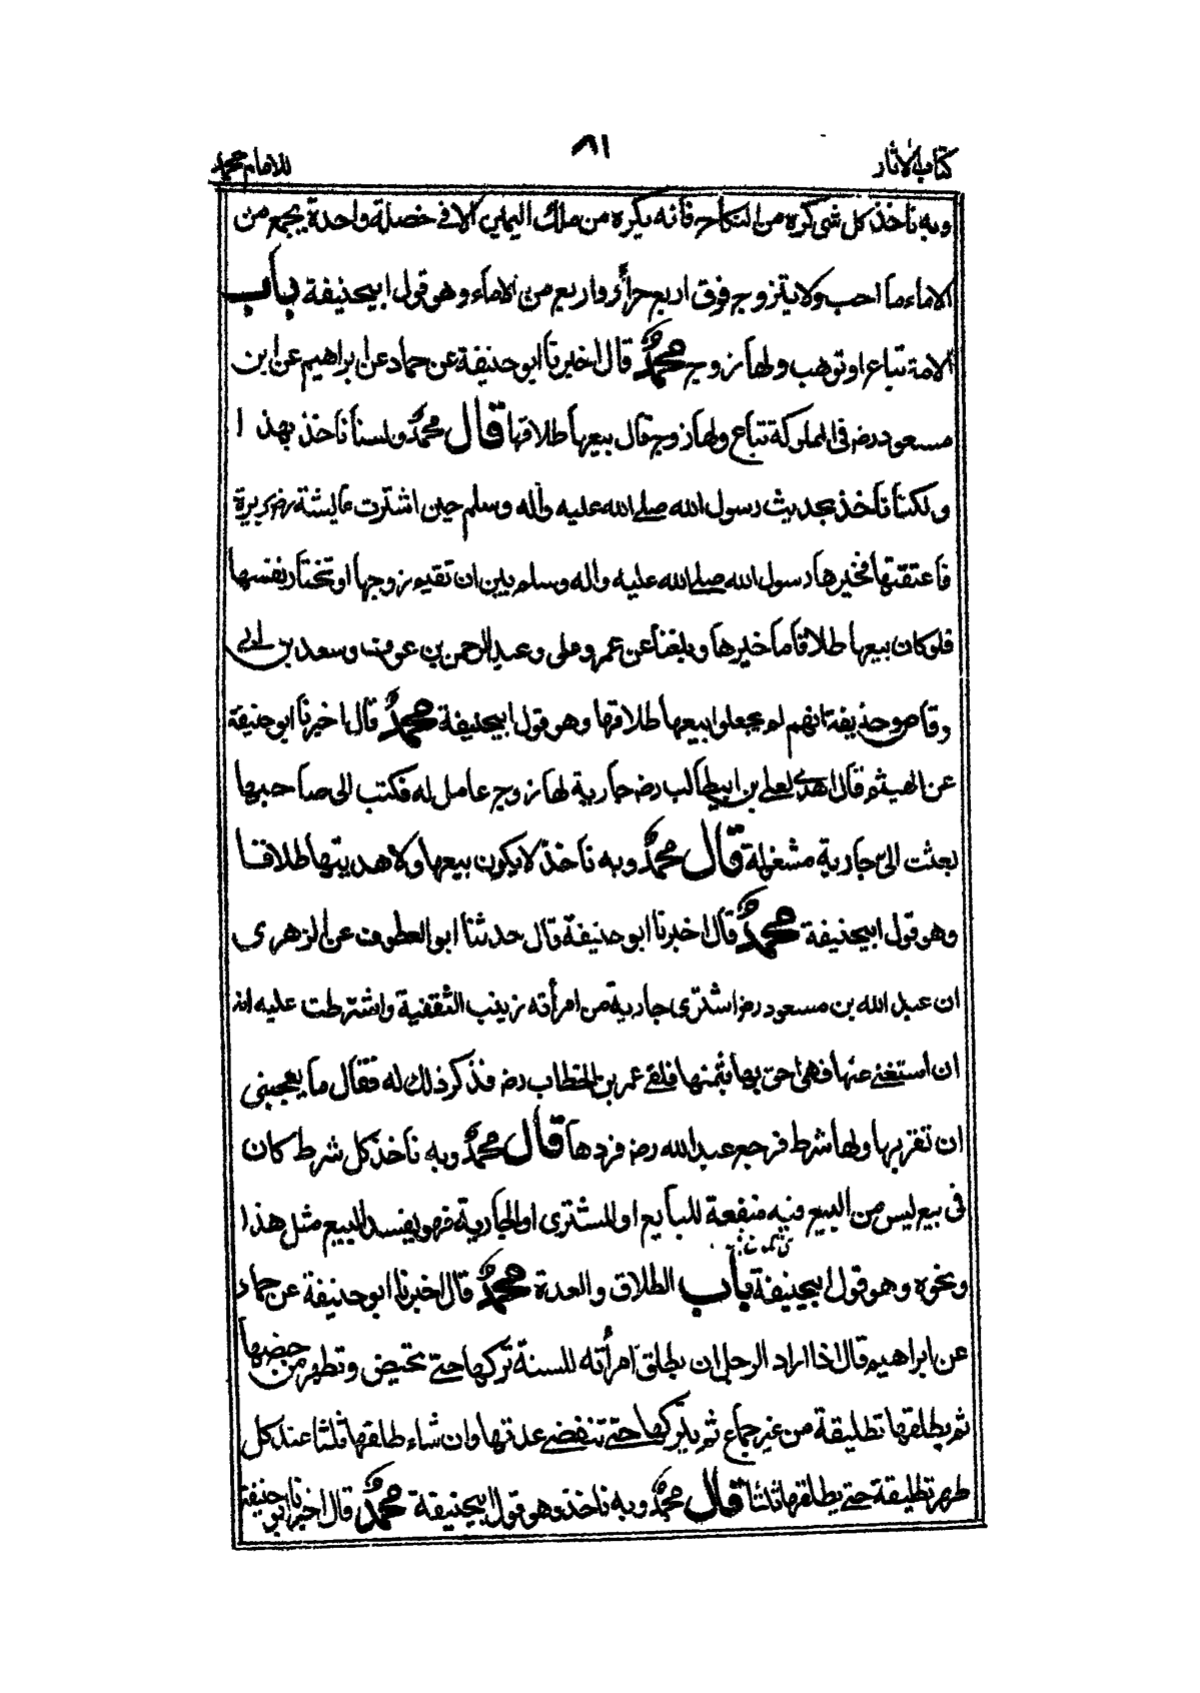 كتاب الآثار
٨١
للامام محمد
وبه ناخذ كل شئ كره من النكاح فانه يكره من ملك اليمين الا فى خصلة واحدة يجمع من
الاماء ما احب ولا يتزوج فوق اربع حرائر واربع من الاماء وهو قول ابيحنيفة باب
الامة تباع او توهب ولها زوج محمدؒ قال اخبرنا ابو حنيفة عن حماد عن ابراهيم عن ابن
مسعود رضـ فى المملوكة تباع ولها زوج قال بيعها طلاقها قال محمدؒ ولسنا ناخذ بهذا
ولكنا ناخذ بحديث رسول الله صلے الله عليه وآله وسلم حين اشترت عايشة رضـ بريرة
فاعتقتها فخيرها رسول الله صلے الله عليه واله وسلم بين ان تقيم زوجها او تختار نفسها
فلو كان بيعها طلاقا ما خيرها وبلغنا عن عمر وعلى وعبد الرحمن بن عوف وسعد بن ابى
وقاص وحذيفة انهم لم يجعلوا بيعها طلاقها وهو قول ابيحنيفة محمدؒ قال اخبرنا ابو حنيفة
عن الهيثم قال اهدى لعلے بن ابيطالب رضـ جارية لها زوج عامل له فكتب الى صاحبها
بعثت الى جارية مشغولة قال محمدؒ وبه ناخذ لا يكون بيعها ولا هديتها طلاقا
وهو قول ابيحنيفة محمدؒ قال اخبرنا ابو حنيفة قال حدثنا ابو العطوف عن الزهرى
ان عبد الله بن مسعود رضـ اشترى جارية من امرأته زينب الثقفية واشترطت عليه انه
ان استغنے عنها فهى احق بها بثمنها فلقے عمر بن الخطاب رضـ فذكر ذلك له فقال ما يعجبنى
ان تقربها ولها شرط فرجع عبد الله رضـ فردها قال محمدؒ وبه ناخذ كل شرط كان
فى بيع ليس من البيع فيه منفعة للبايع او للمشترى او للجارية فهو يفسد البيع مثل هذا
ونحوه وهو قول ابيحنيفة باب الطلاق والعدة محمدؒ قال اخبرنا ابو حنيفة عن حماد
عن ابراهيم قال اذا اراد الرجل ان يطلق امرأته للسنة تركها حتے تحيض وتطهر من حيضها
ثم يطلقها تطليقة من غير جماع ثم يتركها حتے تنقضے عدتها وان شاء طلقها ثلثا عند كل
طهر تطليقة حتے يطلقها ثلثا قال محمدؒ وبه ناخذ وهو قول ابيحنيفة محمدؒ قال اخبرنا ابو حنيفة